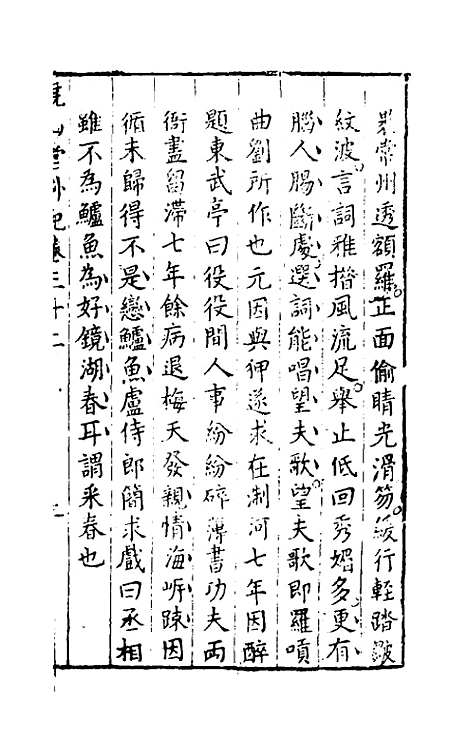 裹常州透額羅正面偷睛光滑笏緩行輕踏皺
紋波言詞雅措風流足舉止低回秀媚多更有
腦人腸斷處選詞能唱望夫歌望夫歌即羅嗊
曲劉所作也元因與狎遂求在淛河七年因醉
題東武亭曰役役間人事紛紛碎薄書功夫兩
衙盡留滯七年餘病退梅天發親情海㟁踈因
循未歸得不是戀鱸魚盧侍郎簡求戲曰丞相
雖不為鱸魚為好鏡湖春耳謂采春也
堯山堂外紀卷三十二